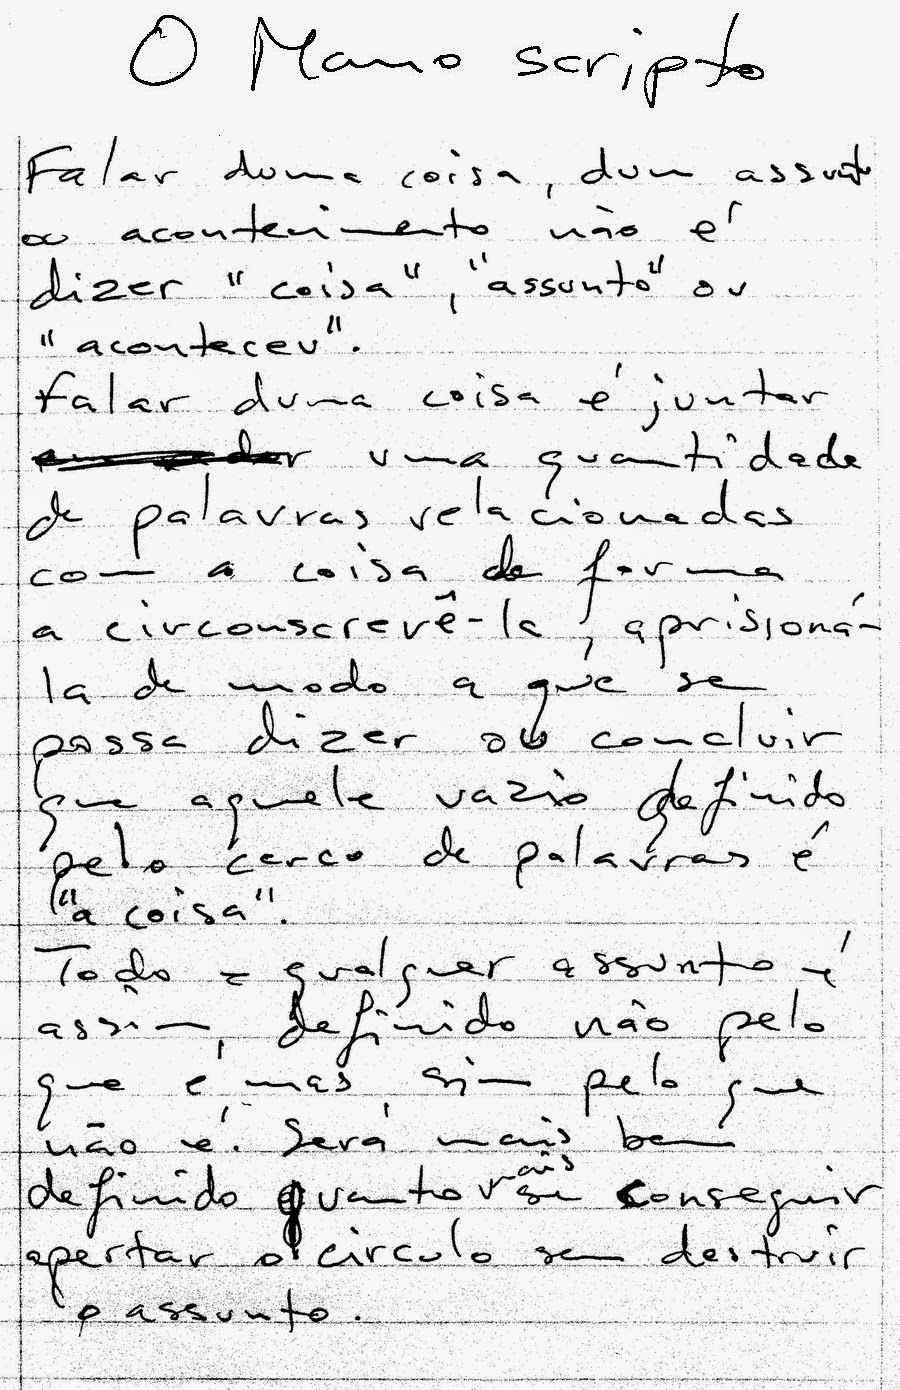 O Mano scripto
Falar duma coisa, dum assunto
ou acontecimento não é
dizer "coisa", "assunto" ou
"aconteceu".
Falar duma coisa é juntar
uma quantidade
de palavras relacionadas
com a coisa de forma
a circonscrevê-la, aprisioná-
la de modo a que se
possa dizer ou concluir
que aquele vazio definido
pelo cerco de palavras é
"a coisa".
Todo e qualquer assunto é
assim, definido não pelo
que é, mas sim pelo que
não é. Será mais bem
definido quanto mais se conseguir
apertar o circulo sem destruir
o assunto.